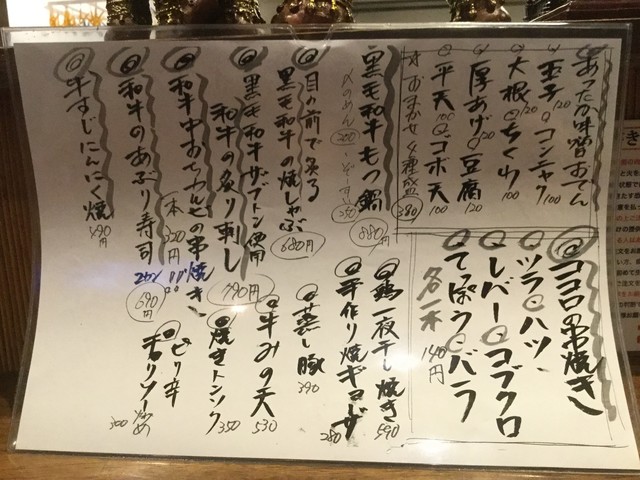 あったか味噌おでん
玉子 120 コンニャク 100
大根 120 ちくわ 100
厚あげ 120 豆腐 120
平天 100 ゴボ天 100
おまかせ4種盛 380
ココロの串焼き
ツラ ハツ
レバー コブクロ
てっぽう バラ
各一本 140円
黒毛和牛もつ鍋 880円
〆のめん 200 ぞーすい 250
鶏一夜干し焼き 590
手作り焼ギョーザ 280
目の前で炙る
黒毛和牛の焼しゃぶ 680円
蒸し豚 390
黒毛和牛ザブトン使用
和牛の炙り刺し 790円
牛みの天 530
焼きトンソク 350
和牛中おちカルビの串焼き
一本 220円!!
ピリ辛
チョリソー炒め 300
和牛のあぶり寿司 2カン 690円
牛すじにんにく焼 490円